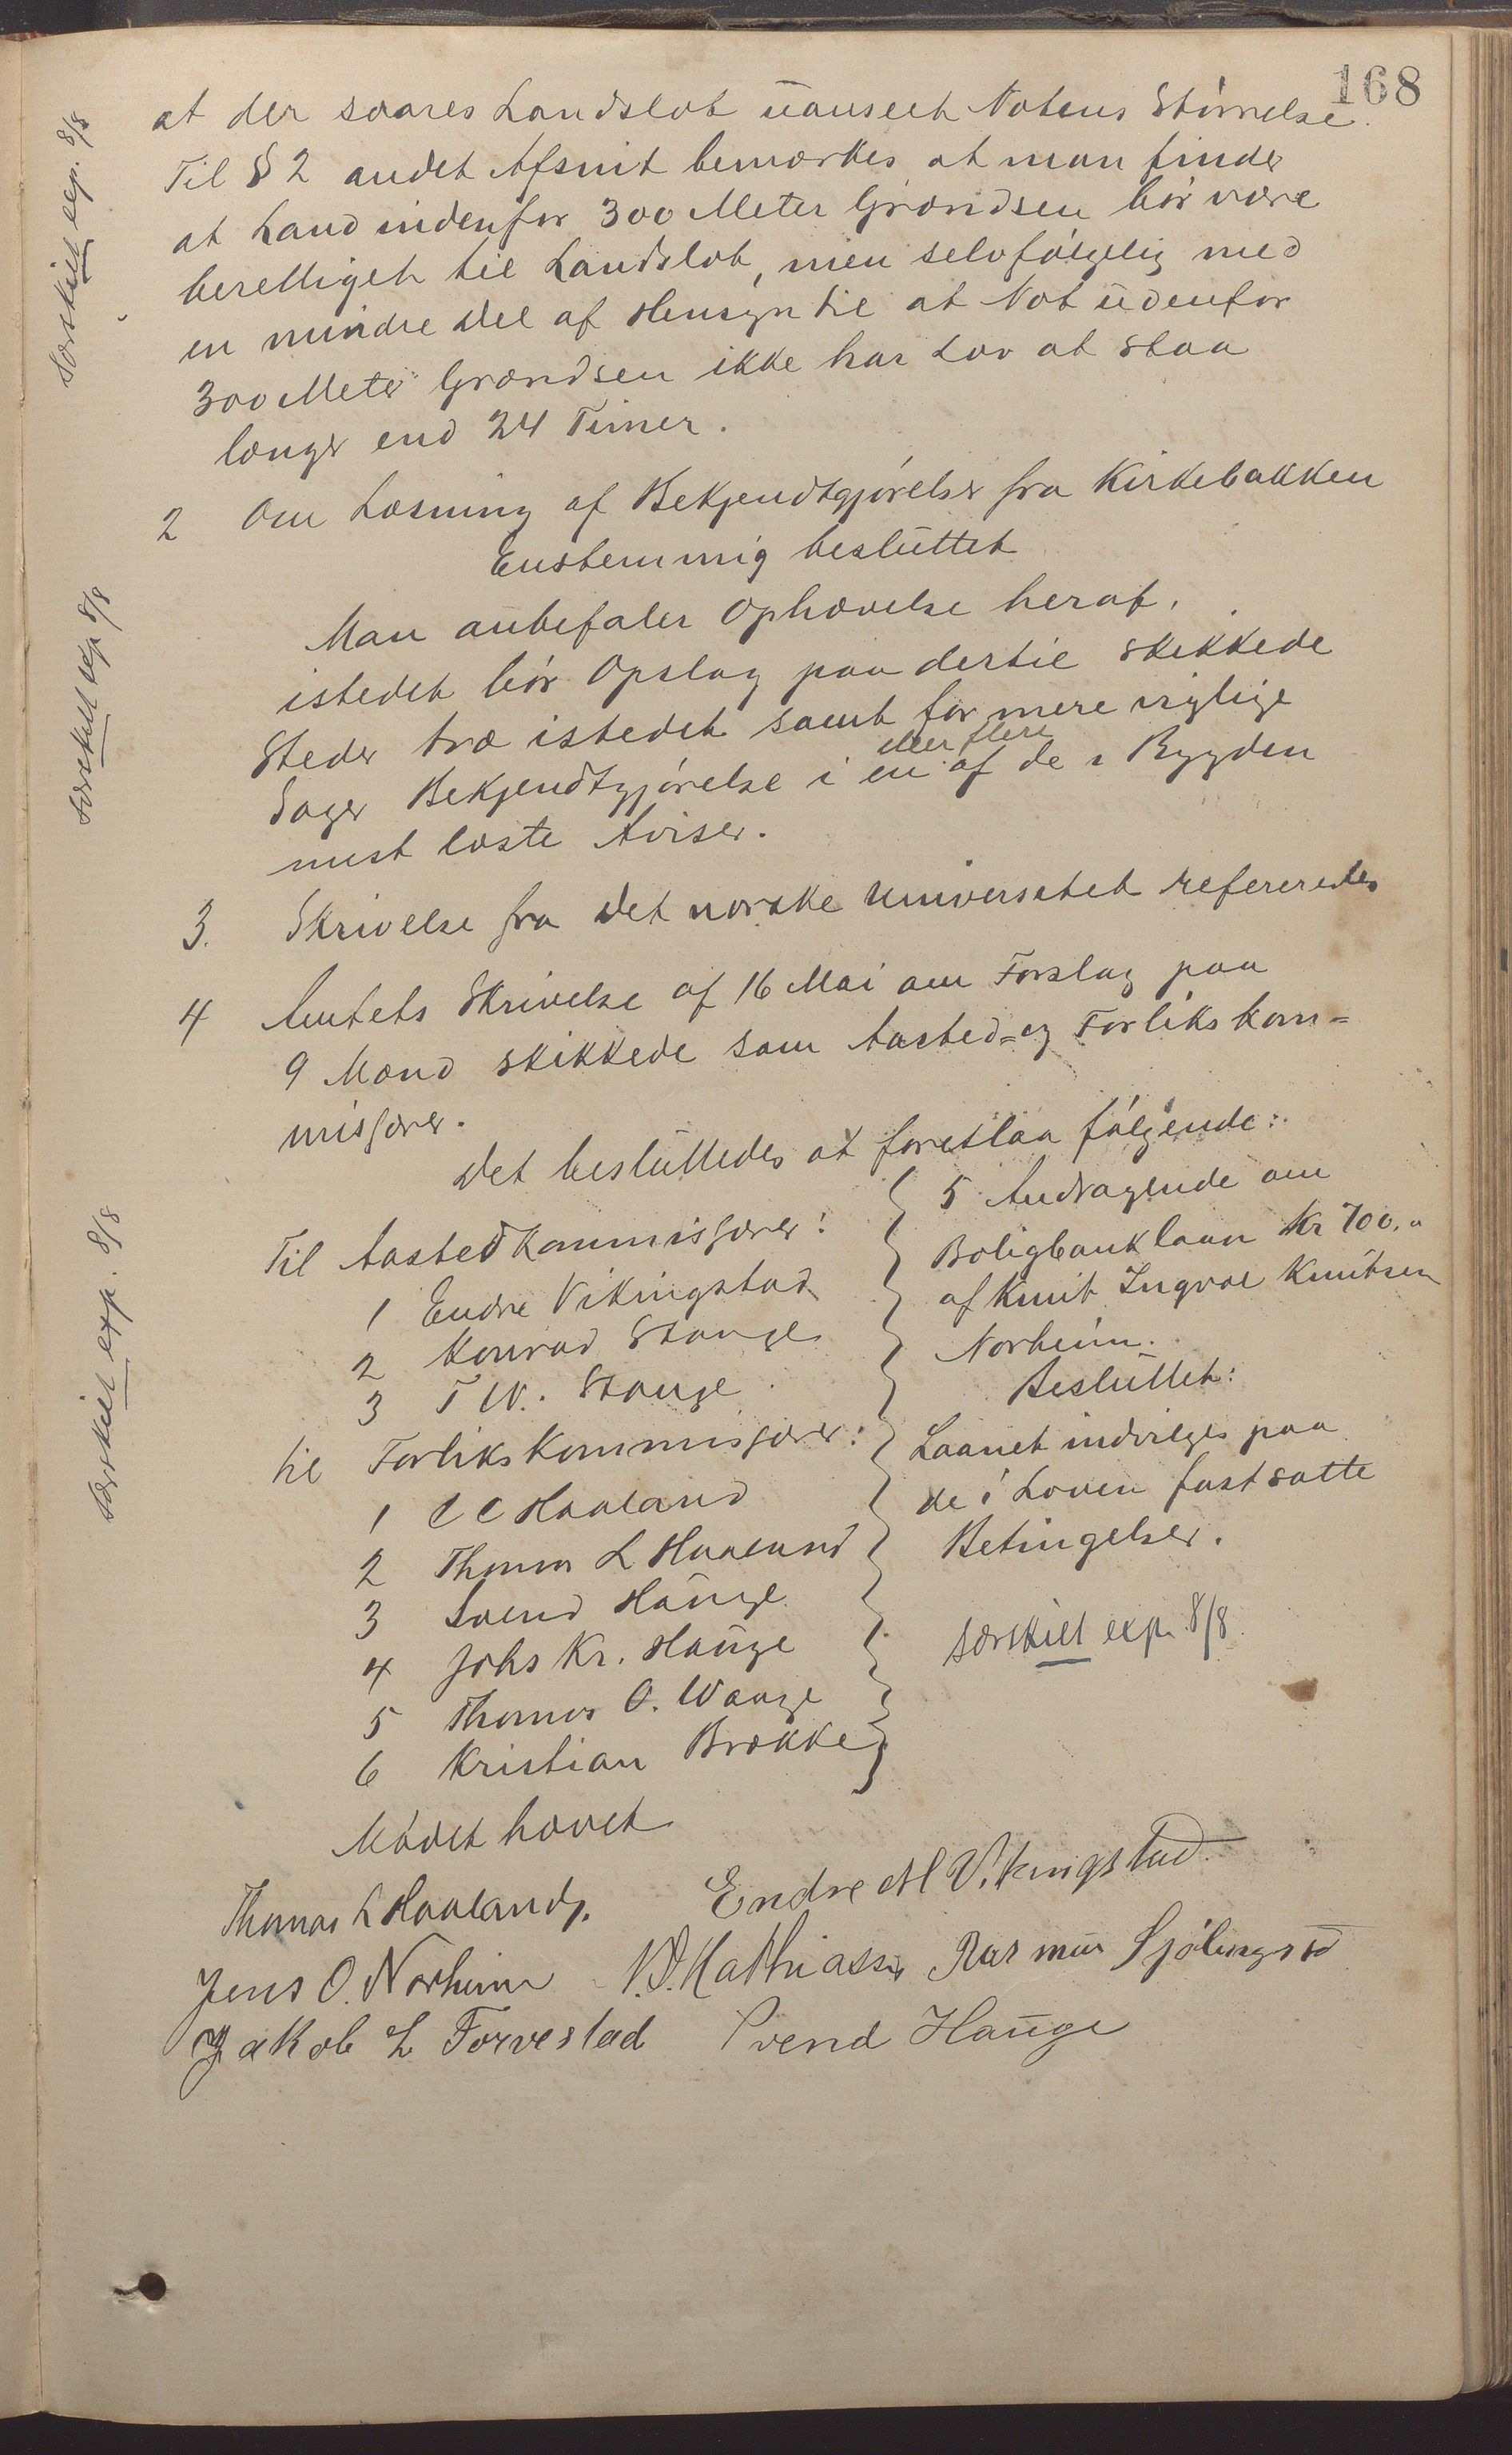 168
at der svares Landslot uanseet Notens Størrelse.
Til § 2 andet Afsnit bemærkes at man finder
at Land indenfor 300 Meter Grændsen bør være
berettiget til Landslot, men selvfølgelig med
en mindre Del af Hensyn til at Not udenfor
300 Meter Grændsen ikke har Lov at staa
længer end 24 Timer.
særskilt exp. 8/8
2 Om Læsning af Bekjendtgjørelser fra Kirkebakken
Enstemmig besluttet
Man anbefaler Ophævelse heraf,
istedet bør Opslag paa dertil skikkede
Steder træ istedet samt for mere vigtige
eller flere
Sager Bekjendtgjørelse i en af de i Bygden
mest læste Aviser.
særskilt exp 8/8
3. Skrivelse fra det norske Universitet refereredes
4 Amtets Skrivelse af 16 Mai om Forslag paa
9 Mænd skikkede som Aasted- og Forlikskom-
misærer.
Det besluttedes at foreslaa følgende:
Til Aastedkommisærer:
1 Endre Vikingstad
2 Konrad Stange
3 T W. Stange
til Forlikskommisærer:
1 C C Haaland
2 Thomas L Haaland
3 Svend Hauge
4 Johs Kr. Hauge
5 Thomas O. Waage
6 Kristian Brække
særskilt exp. 8/8
5 Andragende om
Boligbanklaan Kr 700,"
af Knut Ingvar Knutsen
Norheim.
Besluttet:
Laanet indvilges paa
de i Loven fastsatte
Betingelser.
særskilt exp. 8/8
Mødet hævet
Thomas L Haaland. Endre M Vikingstad
Jens O. Norheim N. D. Mathiassen Rasmus
Jakob L Torvestad Svend Hauge